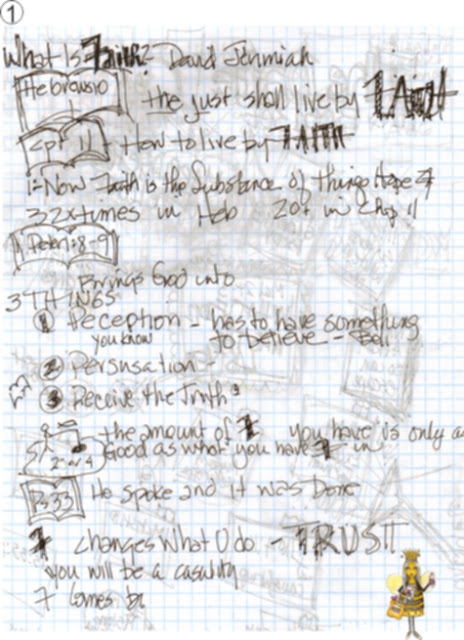 1
What Is Faith? David Jeremiah
Hebrews 10
the just shall live by FAITH
Cpt 11 - How to live by FAITH
1:- Now Faith is the Substance of things Hope 4
32x times in Heb 20+ in Chap 11
1:8-9
Brings God into
3 THINGS
1 Perception - has to have something
you know to believe -
2 Persusation -
3 Receive the Truth
the amount of you have is only as
Good as what you have in
2 4
Ps 33 He spoke and it was Done
changes What U do - TRUST
you will be a casulity
comes